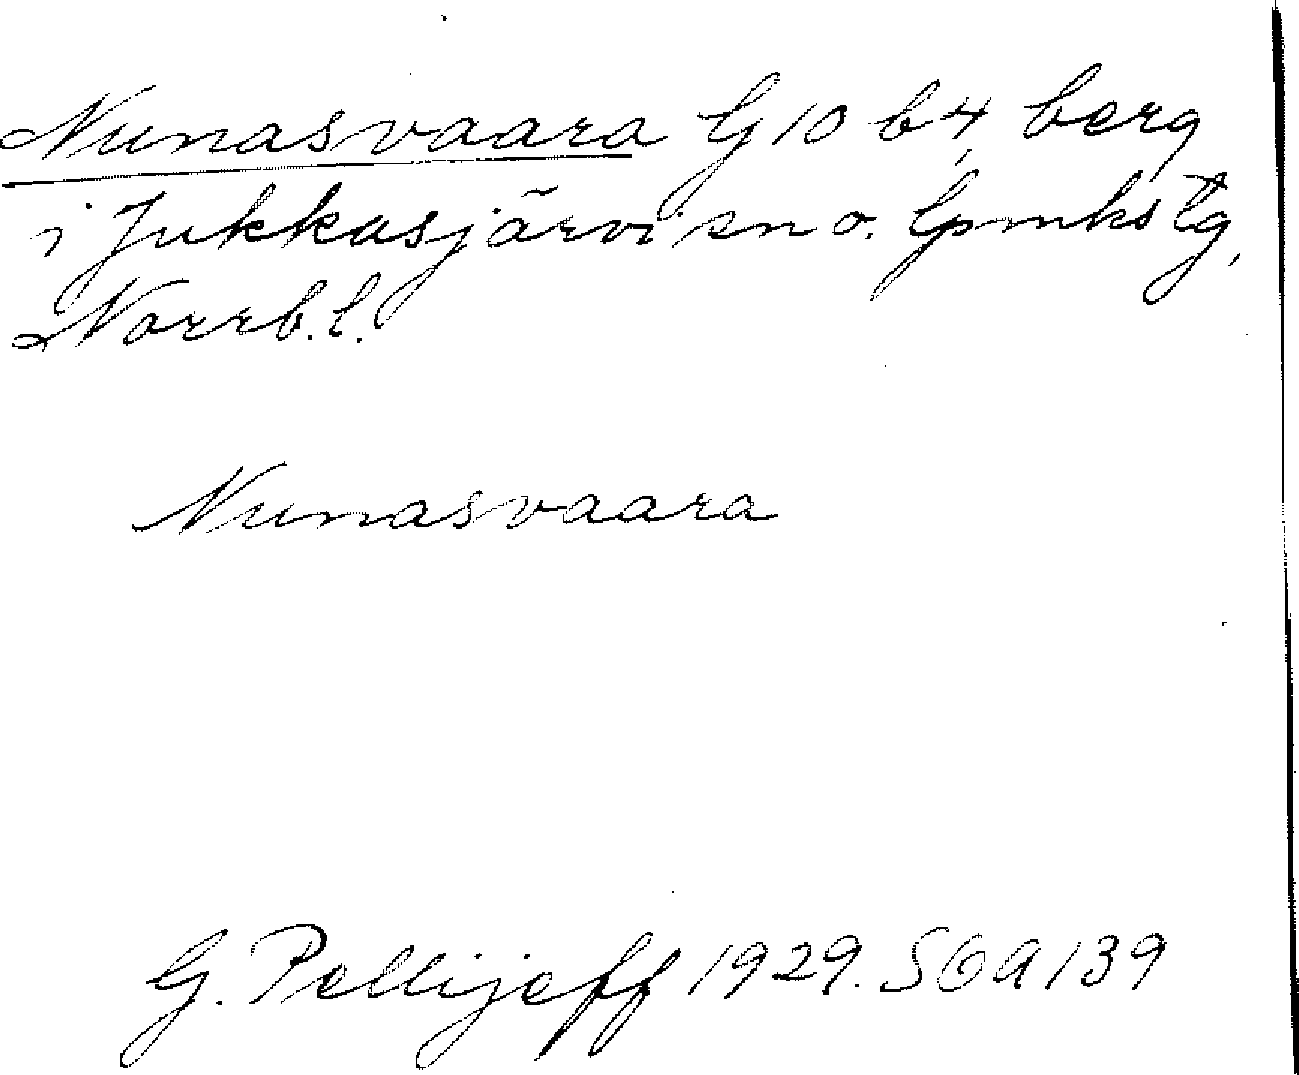 Nunasvaara G 10 b 4, berg
i Jukkasjärvi sn o. lpmks tg,
Norrb. l.
Nunasvaara
G. Pellijeff 1929. SOA 139